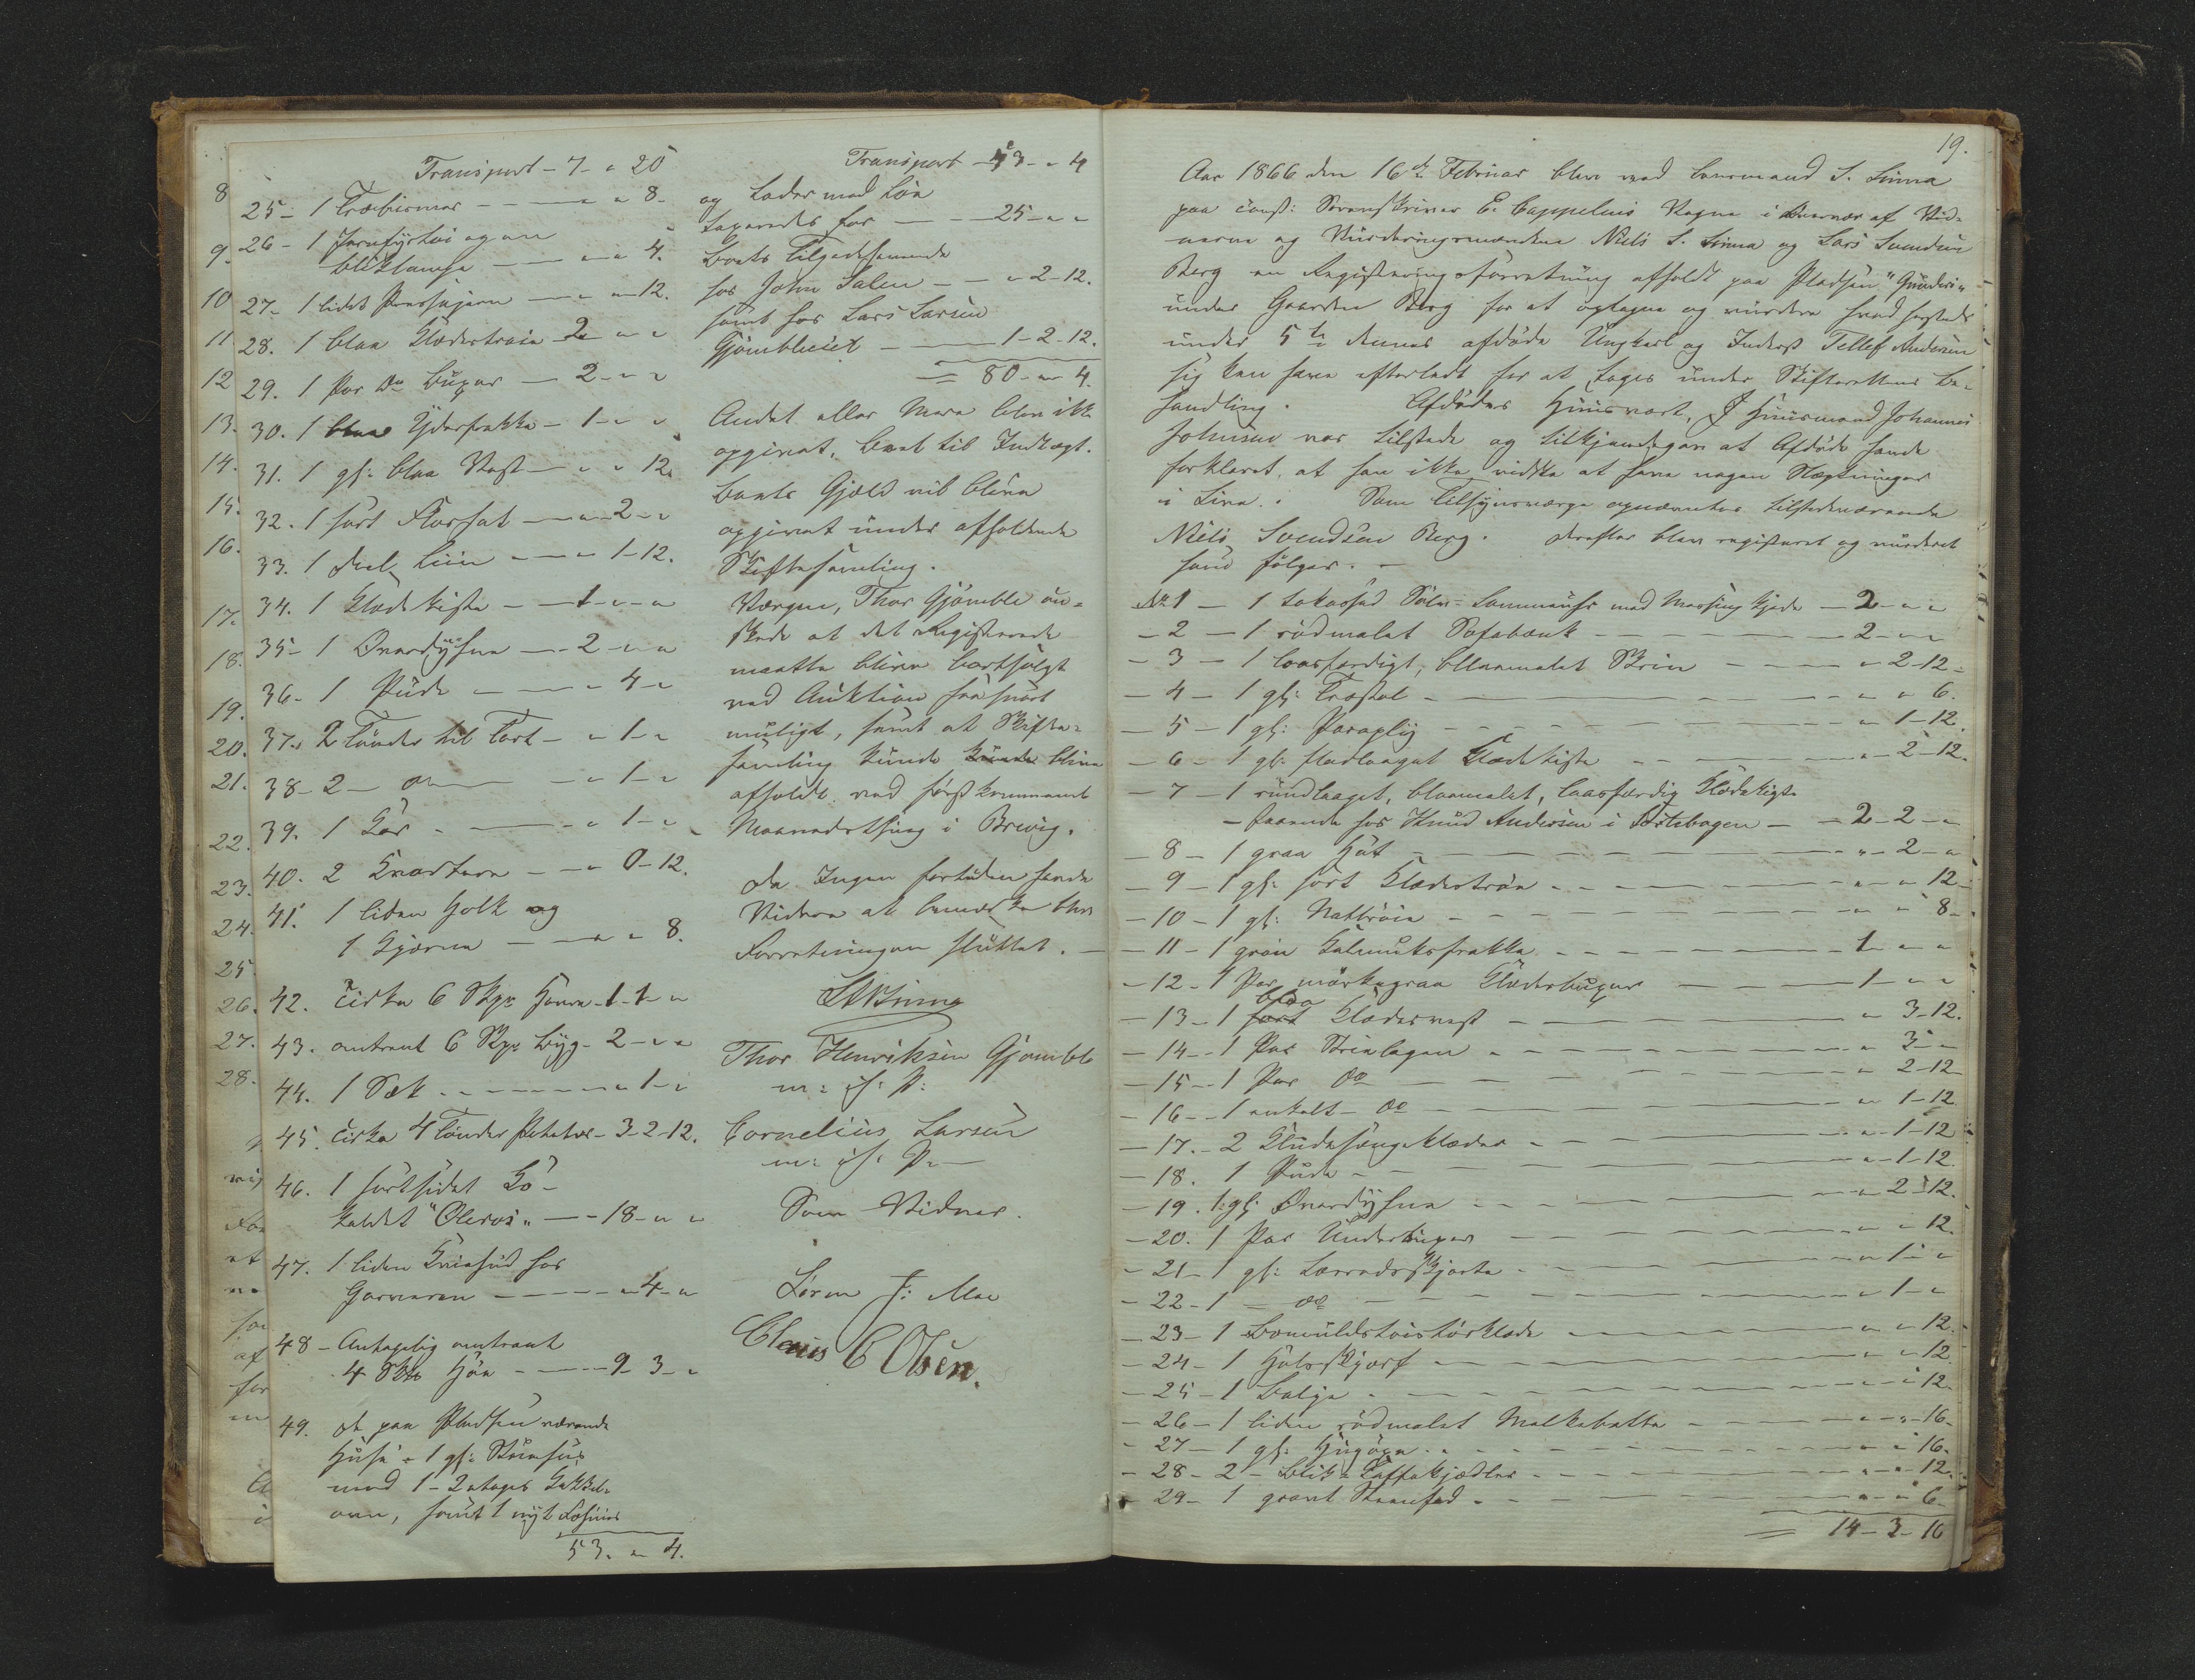 8
9.
10
11
12
13.
14.
15.
16.
17.
18.
19.
20.
21.
22.
23.
24.
25
26.
27.
28.
Transport - 7 - " 20
25 - 1 Træbismer - " " 8.
26 - 1 Jernfyrtøi og en
bliklampe - " " 4.
27 - 1 lidet Pressejern - " " 12.
28. 1 blaa Klædestrøie 2 " "
29. 1 Par Do Buxer - 2 - " "
30. 1 blaa Yderfrakke - 1 - " "
31. 1 gl: blaa Vest - " " 12.
32. 1 sort Florhat - " 2 - "
33. 1 Deel Liin - " 1 - 12.
34. 1 Klædekiste - 1 - " "
35 - 1 Overdyhne - 2 - " "
36 - 1 Pude - " 4 - "
37. 2 Tønder til Tort - " 1 - "
38 - 2 - do - " 1 - "
39. 1 Kar - " 1 - "
40. 2 Kvartere - " 0 - 12.
41. 1 liden Holk og
1 Kjærne - " " 8.
42. Cirka 6 Skpr Havre - 1 - 1 - "
43. omtrent 6 Skpr Byg - 2 - " "
44. 1 Sæk - " 1 - "
45. Cirka 4 Tønder Poteter - 3 - 2 - 12.
46. 1 sortsidet Ko -
kaldet "Oleros" - 18 - " "
47. 1 liden Kviehud hos
Garveren - " 4 - "
48 - Antagelig omtrent
4 Sk℔ Høe - 9 - 3 - "
49. De paa Pladsen værende
Huse - 1 gl: Stuehus
med 1 - 2 etages Kakkel-
ovn, samt 1 nyt Fæhuus
53. " 4.
Transport - 53 - " 4
og Lader med Løe
taxeredes for - 25 - " "
Boets Tilgodehavende
hos John Salen - " 2 - 12.
samt hos Lars Larsen
Gjømbleeiet - 1 - 2 - 12.
= 80 - " 4.
Andet eller Mere blev ikke
opgivet, Boet til Indtægt.
Boets Gjæld vil blive
opgivet under afholdende
Skiftesamling.
Værgen, Thor Gjømble øn-
skede at det Registrerede
maatte blive bortsolgt
ved Auktion saasnart
muligt, samt at Skifte-
samling kunde kunde blive
afholdt ved førstkommende
Maanedsthing i Brevig.
Da Ingen fortiden havde
Videre at bemærke blev
Forretningen sluttet. -
Thor Henriksen Gjømble
m: if: P:
Cornelius Larsen
m: if: P: -
Som Vidner.
Søren J: Moe
Claus C Olsen.
19.
Aar 1866 den 16de Februar blev ved Lensmand S. Linna
paa const: Sorenskriver E. Cappelens Vegne i Overvær af Vid-
nerne og Vurderingsmændene Niels S. Linna og Lars Svendsen
Berg en Registreringsforretning afholdt paa Pladsen "Gunderi"
under Gaarden Berg for at optegne og vurdere hvad hersteds
under 5te dennes afdøde Ungkarl og Inderst Tellef Andersen
sig kan have efterladt for at tages under Skifterettens Be-
handling. Afdødes Huusvært, Huusmand Johannes
Johnsen var tilstede og tilkjendegav at Afdøde havde
forklaret, at han ikke vidste at have nogen Slægtninger
i Live. Som Tilsynsværge opnævntes tilstedeværende
Niels Svendsen Berg. Derefter blev registreret og vurderet
som følger. -
No 1 - 1 tokasset Sølv-Lommeuhr med Messing Kjæde - 2 - " "
- 2 - 1 rødmalet Sofabænk - 2 - " "
- 3 - 1 laasfærdigt, blaamalet Skrin - " 2 - 12
- 4 - 1 gl: Træstol - " " 6.
- 5 - 1 gl: Paraply - " 1 - 12.
- 6 - 1 gl: fladlaaget Klædekiste - " 2 - 12.
- 7 - 1 rundlaaget, blaamalet, laasfærdig Klædekiste
- staaende hos Knud Andersen i - 2 - 2 - "
- 8 - 1 graa Hat - " 2 - "
- 9 - 1 gl: sort Klædestrøie - " " 12
- 10 - 1 gl: Nattrøie - " " 8
- 11 - 1 grøn Kalmuksfrakke - 1 - " "
- 12 - 1 Par mørkegraa Klædesbuxer - 1 - " "
- 13 - 1 sort blaa Klædesvest - " 3 - 12.
- 14 - 1 Par Strielagen - " 3 - "
- 15 - 1 Par do - " 2 - 12
- 16 - 1 enkelt do - " 1 - 12
- 17 - 2 Kludesengeklæder - " 1 - 12
- 18. 1 Pude - " 1 - 12.
- 19. 1 gl: Overdyhne - " 2 - 12.
- 20. 1 Par Underbuxer - " " 12
- 21 - 1 gl: Lærredsskjorte - " 1 - "
- 22 - 1 - do - " 1 - "
- 23 - 1 Bomuldstøistørklæde - " " 12
- 24 - 1 Halsskjærf - " " 12
- 25 - 1 Balje - " " 12
- 26 - 1 liden rødmalet Melkebøtte - " " 16.
- 27 - 1 gl: Hugøxe - " " 16.
- 28 - 2 - Blik-Kaffekjædler - " " 12.
- 29 - 1 graat Steenfad - " " 6.
= 14 - 3 - 16